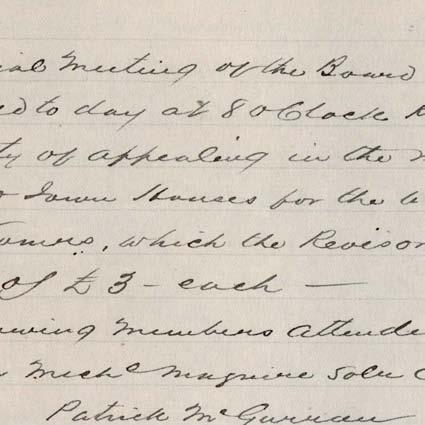 ial Meeting of the Board
ed to day at 8 o'Clock
ty of appealing in the
Town Houses for the
Tomers, which the Revisor
of £3 - each -
owing Members attende
Mich^c Maguire Solr
Patrick McGurran